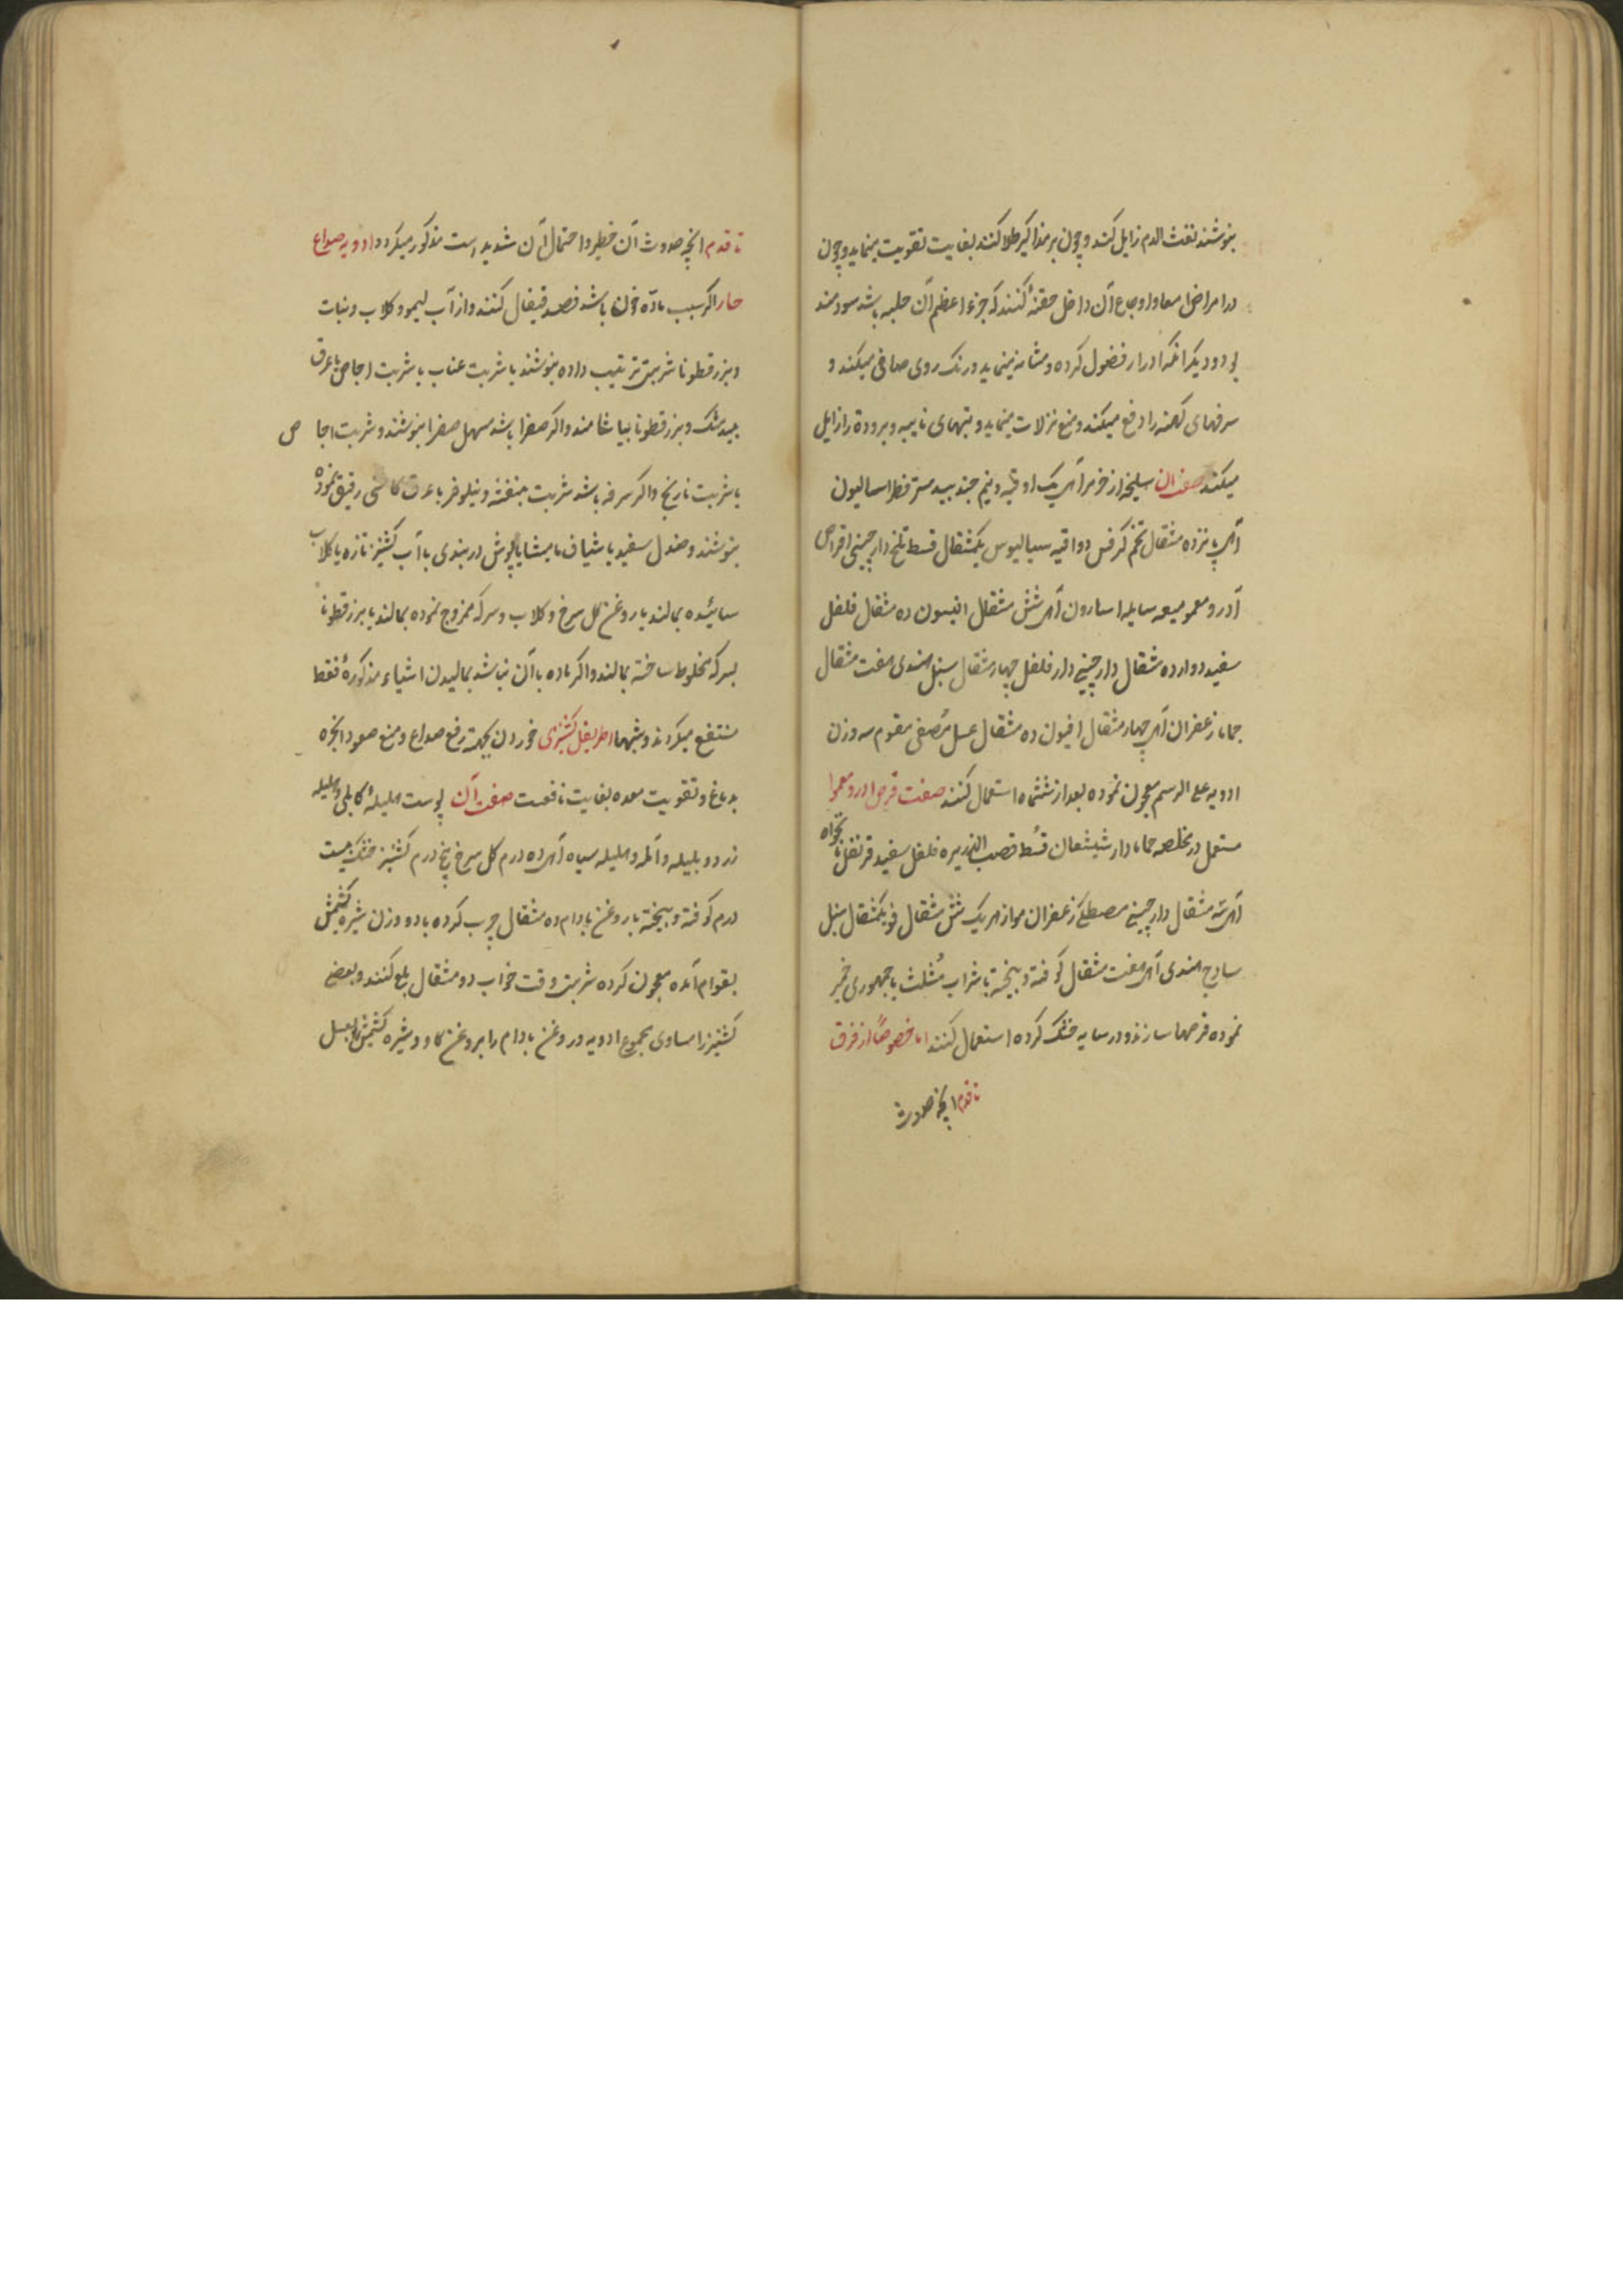 بنوشند نفث الدم زایل کند و چون بر مذاکیر طلا کنند بغایت تقویت مینماید و چون
در امراض امعا و اوجاع آن داخل حقنهٔ کنند که جزء اعظم آن حلبه باشد سودمند
بود و دیگر آنکه ادرار فضول کرده و مشانه مینماید و رنک روی صافی میکند و
سرفهای کهنه را دفع میکند و منع نزلات مینماید و تبهای نایبه و برودة را زایل
میکند صفت آن سلیخه اذخر از هر یک اوقیه و نیم جندبیدستر فطراسالیون
از هر یک پانزده مثقال تخم کرفس دو اقیه سیالیوس یکمثقال قسط تلخ دارچینی اقراص
آدرومعمو میعه سایله اسارون از هر یک شش مثقال انیسون ده مثقال فلفل
سفید دوازده مثقال دارچینی دارفلفل چهار مثقال سنبل هندی هفت مثقال
حماما زعفران از هر یک چهار مثقال افیون ده مثقال عسل مُصفی مقوم سه وزن
ادویه علی الرسم معجون نموده بعد از ششماه استعمال کنند صفت قرص ادرومعموا
مستعمل در مخلصه حماما دارشیشعان قسُط قصب الذریره فلفل سفید قرنفل نانخواه
از هر یک سه مثقال دارچینی مصطکی زعفران مو از هر یک شش مثقال فو یکمثقال سنبل
سادج هندی از هر یک هفت مثقال کوفته و بیخته با شراب مُثلث یا جمهوری خمیر
نموده قرصها سازند و در سایه خشک کرده استعمال کنند اما خصوصًا از فرق
تا قدم انچه حدوث
تا قدم انچه حدوث آن خطیر و احتمال آن شدید است مذکور میکردد ادویه صداع
حار اکر سبب مادّه خون باشد فصد قیفال کنند و از آب لیمو و کلاب و نبات
و بزرقطونا شربتی ترتیب داده بنوشند یا شربت عناب یا شربت اجاص با عرق
بیدمشک و بزرقطونا بیاشامند و اکر صفرا باشد مسهل صفرا بنوشند و شربت اجاص
یا شربت نارنج و اکر سرفه باشد شربت بنفشه و نیلوفر با عرق کاسنی رقیق نموده
بنوشند و صندل سفید یا شیاف مامیشا یا پوش دربندی با آب کشنیز تازه یا کلاب
سائیده بمالند یا روغن کل سرخ و کلاب و سرکه ممزوج نموده بمالند یا بزرقطونا
بسرکه مخلوط ساخته بمالند و اکر ماده با آن نباشد بمالیدن اشیاء مذکورهٔ فقط
منتفع میکردند و شبها اطریفل کشنیزی خوردن بجهت رفع صداع و منع صعود ابخره
بدماغ و تقویت معده بغایت نافعست صفت آن پوست هلیلهٔ کابلی و هلیله
زرد و بلیله و آمله و هلیله سیاه از هر یک ده درم کل سرخ پنج درم کشنیز خشک بیست
درم کوفته و بیخته با روغن بادام ده مثقال چرب کرده با دو وزن شیره کشمش
بقوام آمده معجون کرده شربتی وقت خواب دو مثقال بلع کنند و بعضی
کشنیز را مساوی مجموع ادویه و روغن بادام را بروغن کاو و شیره کشمش را بعسل